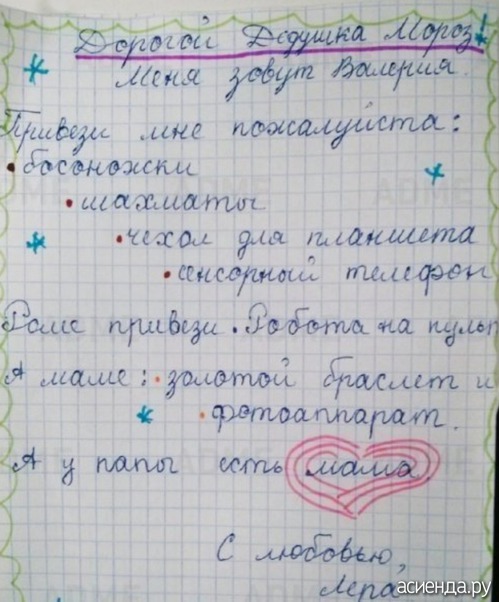 Дорогой Дедушка Мороз!
Меня зовут Валерия.
Привези мне пожалуйста:
• босоножки
• шахматы
• чехол для планшета
• сенсорный телефон
Роме привези • Робота на пульт
А маме: • золотой браслет и
• фотоаппарат.
А у папы есть мама.
С любовью,
Лера
асиенда.ру